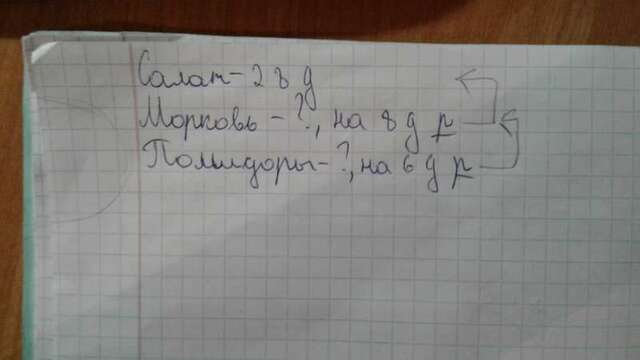 Салат - 28 д
Морковь - ?, на 8 д Б
Помидоры - ?, на 6 д Б